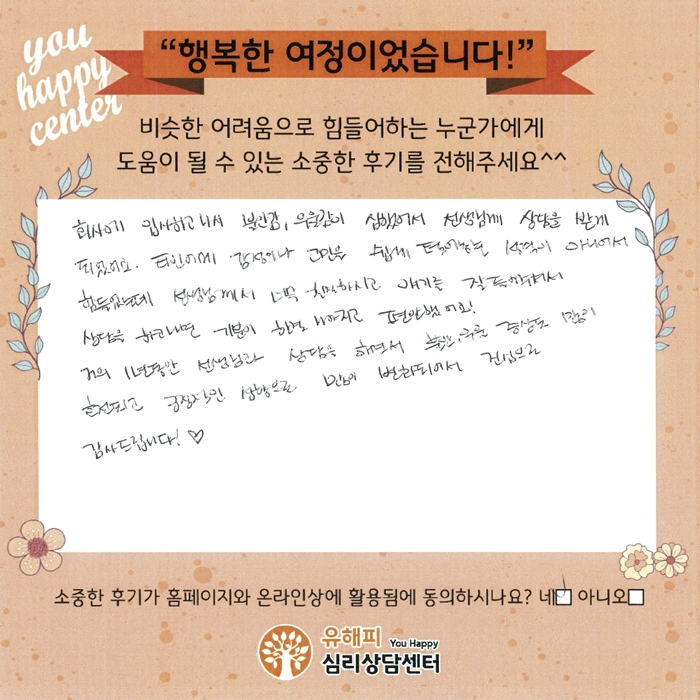 you
happy
center
“행복한 여정이었습니다!”
비슷한 어려움으로 힘들어하는 누군가에게
도움이 될 수 있는 소중한 후기를 전해주세요^^
회사에 입사하고나서 불안감, 우울감이 심했어서 선생님께 상담을 받게
되었어요. 타인에게 감정이나 고민을 쉽게 털어놓는 성격이 아니어서
힘들었는데 선생님께서 너무 친절하시고 얘기를 잘 들어주셔서
상담을 하고나면 기분이 한결 나아지고 편안했어요!
거의 1년동안 선생님과 상담을 하면서 불안, 우울 증상도 많이
호전되고 긍정적인 성향으로 많이 변화되어서 진심으로
감사드립니다! ♡
소중한 후기가 홈페이지와 온라인상에 활용됨에 동의하시나요? 네☑ 아니오☐
유해피 You Happy
심리상담센터